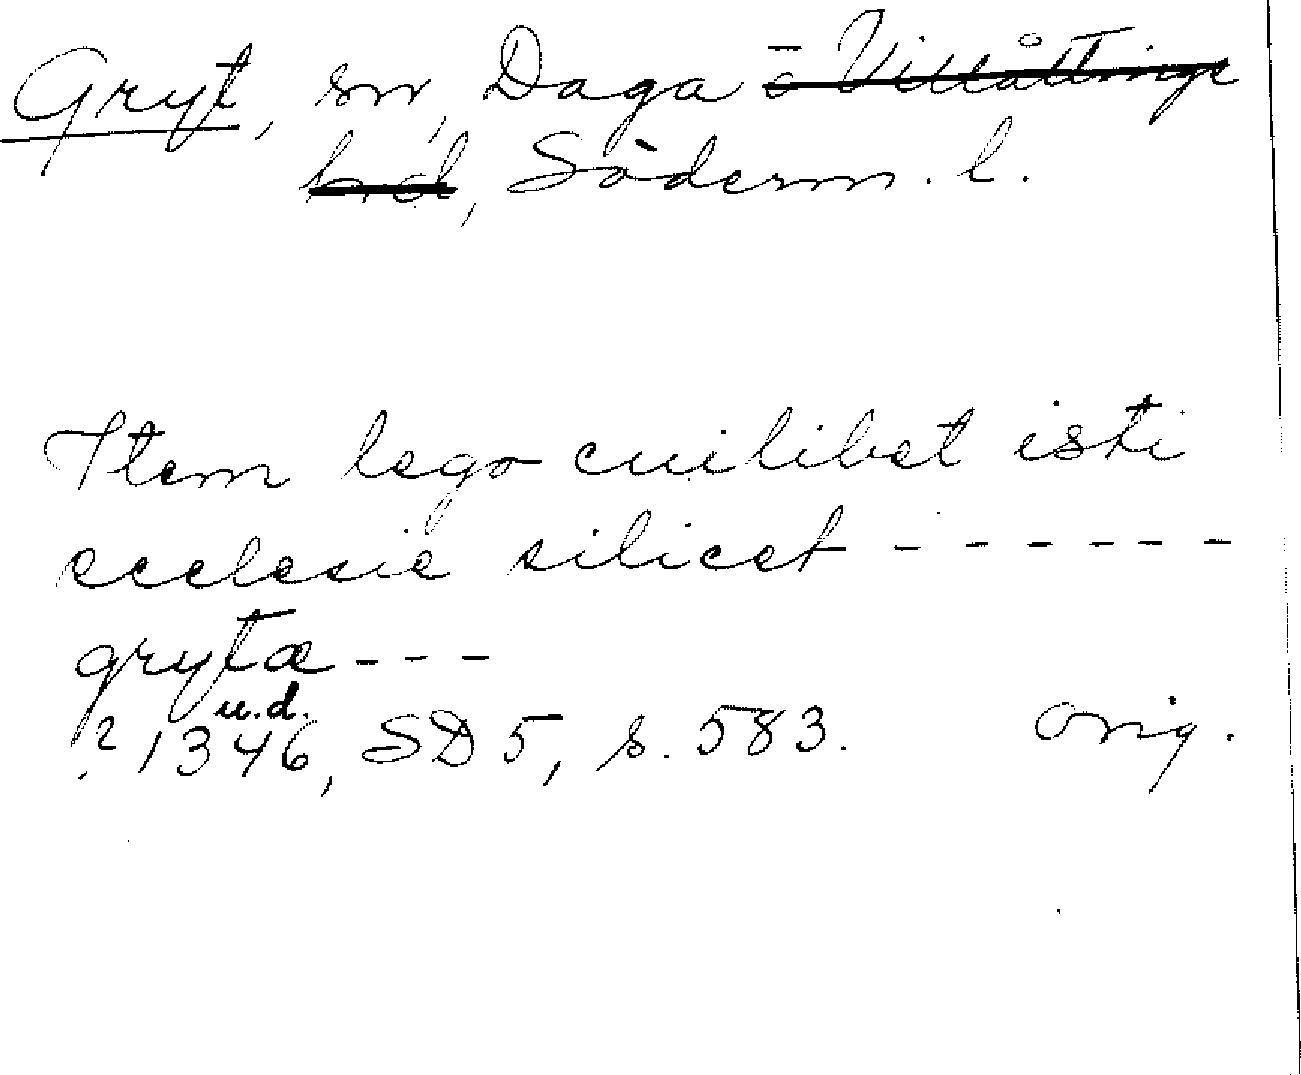 Gryt, sn, Daga ö Villåttinge
hd, Söderm. l.
Item lego cuilibet isti
ecclesie silicet - - - - - -
grytæ - - -
u.d.
? 1346, SD 5, s. 583. Orig.